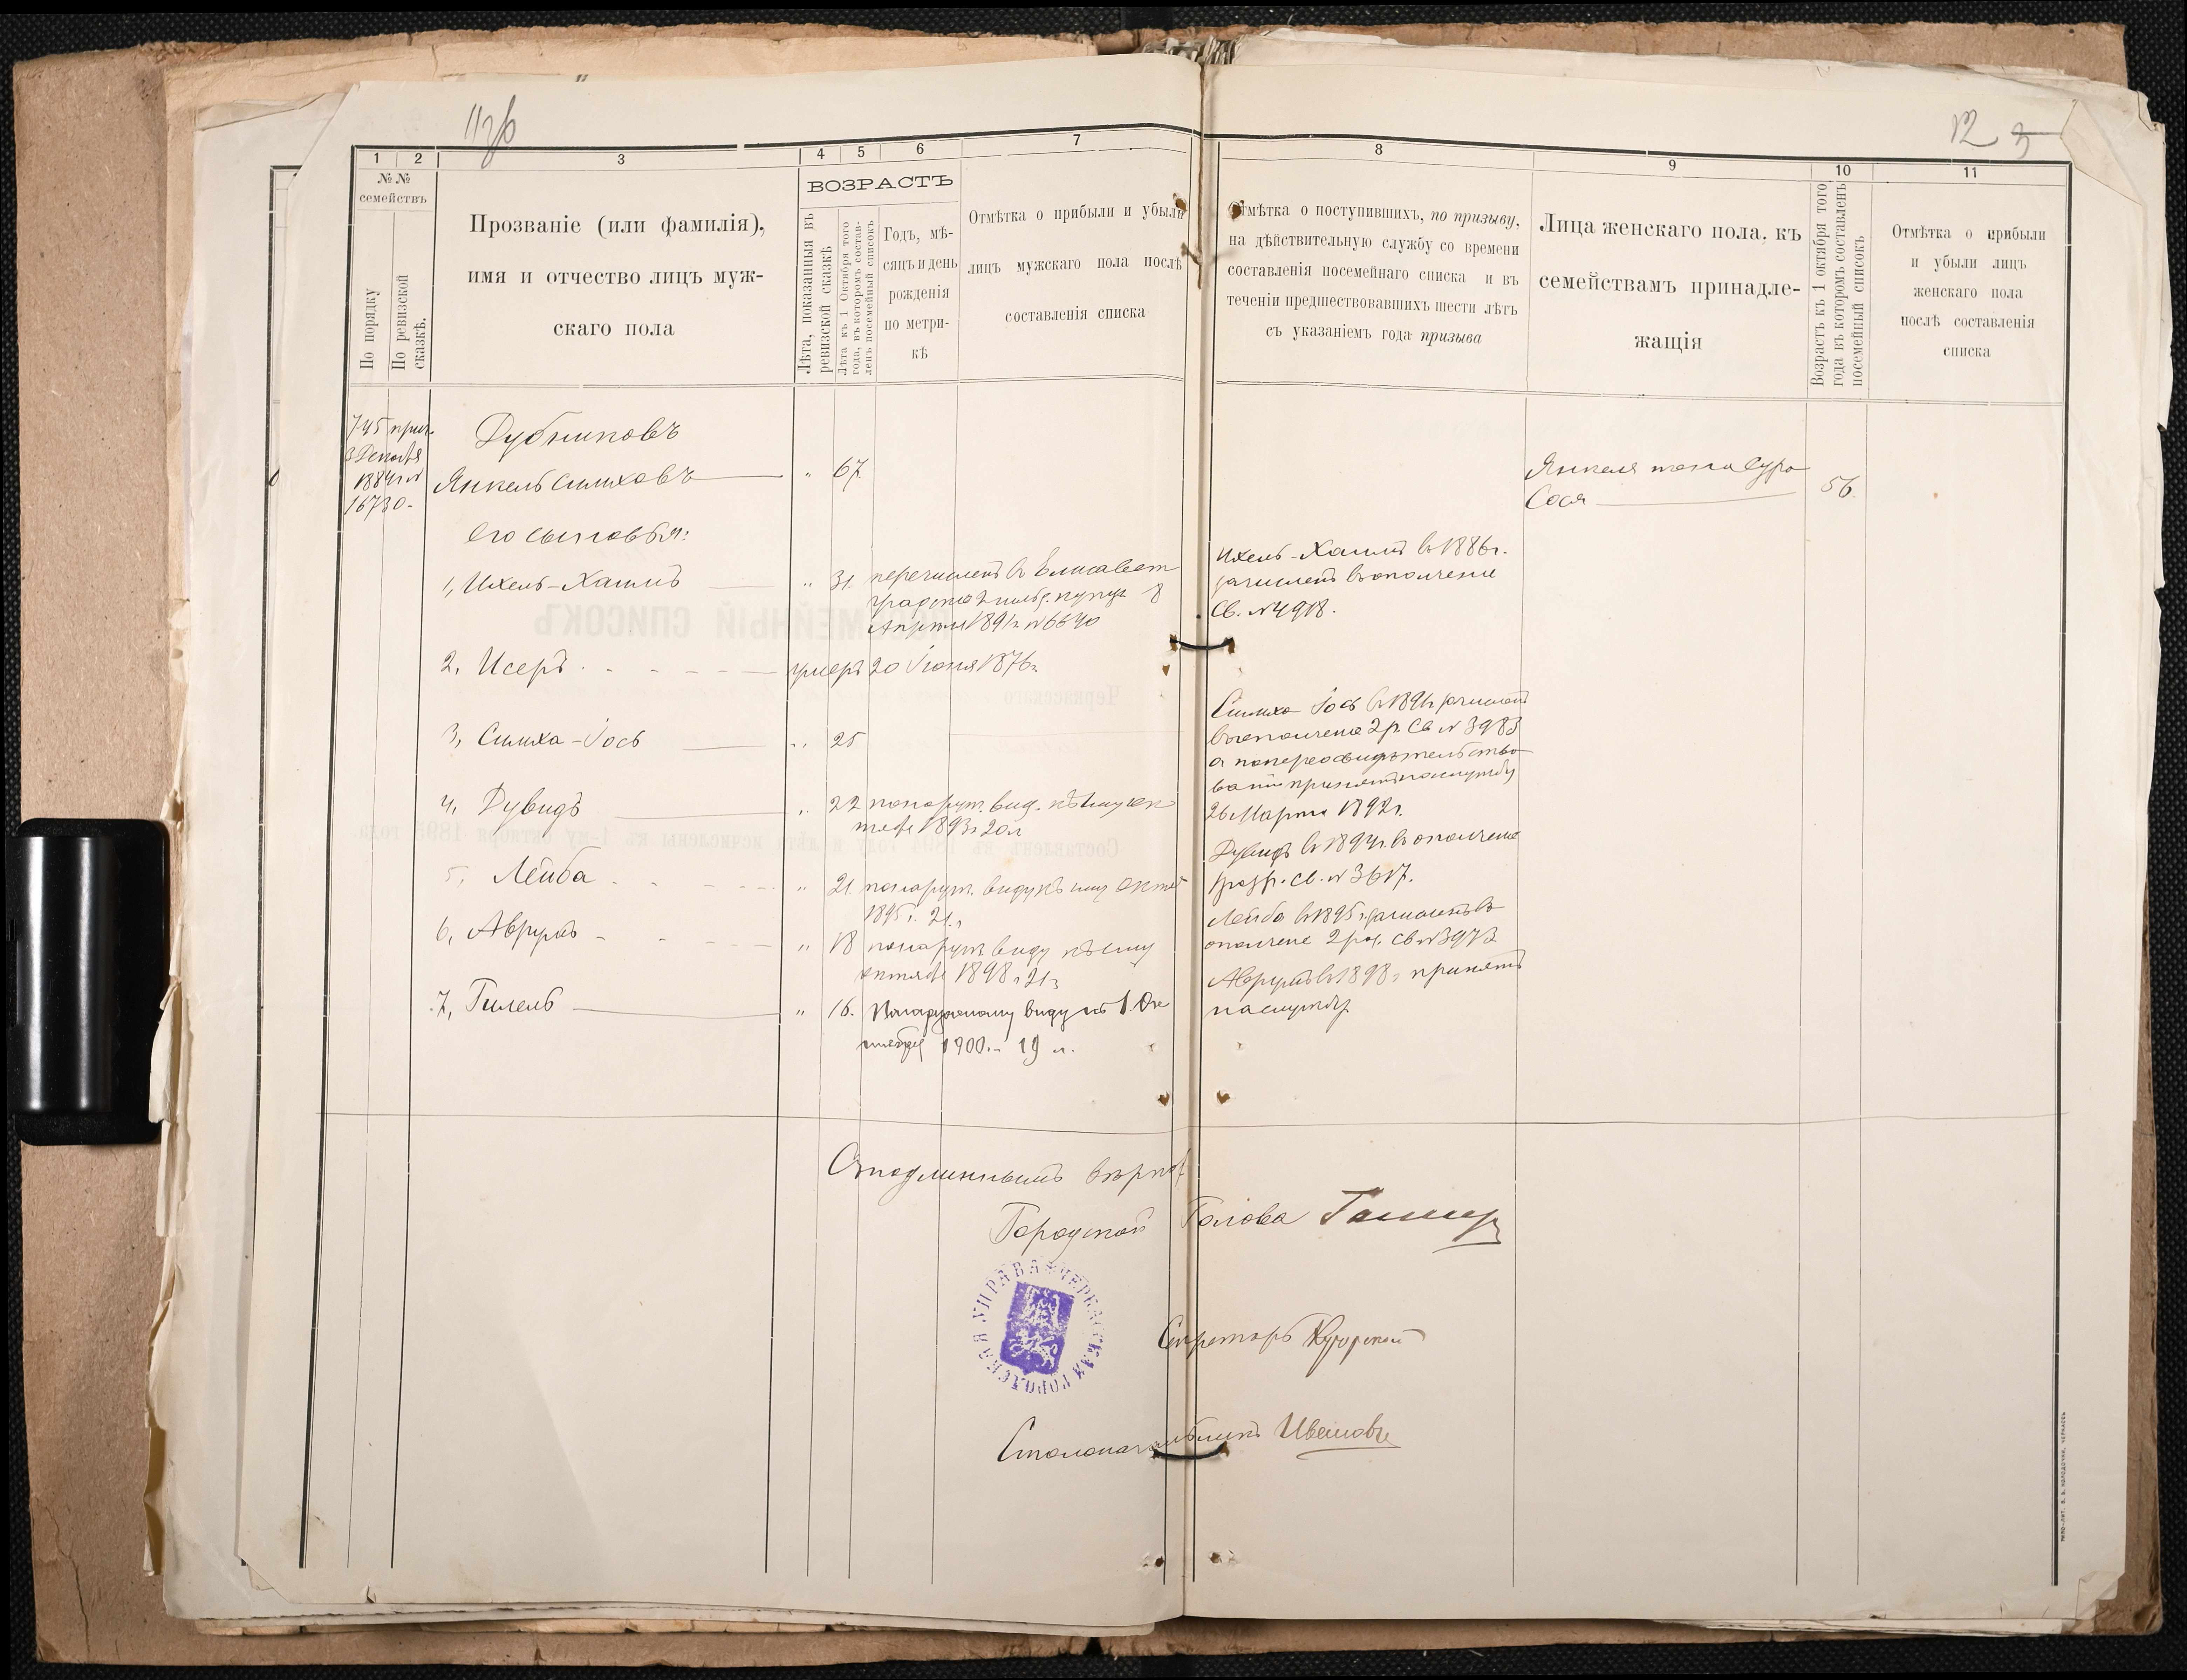 11об
12
3
1
2
3
4
5
6
7
8
9
10
11
№ №
семействъ
По порядку
По ревизской
сказкѣ.
Прозваніе (или фамилія),
имя и отчество лицъ муж-
скаго пола
ВОЗРАСТЪ
Лѣта, показанныя въ
ревизской сказкѣ
Лѣта къ 1 Октября того
года, въ которомъ состав-
ленъ посемейный списокъ
Годъ, мѣ-
сяцъ и день
рожденія
по метри-
кѣ
Отмѣтка о прибыли и убыли
лицъ мужскаго пола послѣ
составленія списка
Отмѣтка о поступившихъ, по призыву,
на дѣйствительную службу со времени
составленія посемейнаго списка и въ
теченіи предшествовавшихъ шести лѣтъ
съ указаніемъ года призыва
Лица женскаго пола, къ
семействамъ принадле-
жащія
Возрастъ къ 1 октября того
года въ которомъ составленъ
посемейный списокъ
Отмѣтка о прибыли
и убыли лицъ
женскаго пола
послѣ составленія
списка
745 прич.
3 Декабря
1884 г. №
16730.
Дубниковъ
Янкель Симховъ " 67.
Янкеля жена Сура
Сося 56.
Его сыновья:
1, Ихель-Хаимъ " 31. перечисленъ въ Елисавет
градскіе 2 гильд. купцы 8
Апрѣля 1891 г. № 6640
Ихель-Хаимъ въ 1886 г.
зачисленъ въ ополченіе
Св. № 4918.
2, Исеръ умеръ 20 Іюня 1876 г.
3, Симха-Іось " 25
Симха Іось въ 1891 г. зачисленъ
въ ополченіе 2 р. Св. № 3983
а по переосвидѣтельство
ваніи принятъ на службу
26 Марта 1892 г.
4, Дувидъ " 22 по наруж. вид. къ 1му ок
тября 1893 г. 20 л.
Дувидъ въ 1894 г. въ ополченіе
1 разр. св. № 3617.
5, Лейба " 21. по наруж. виду къ 1му октяб
1895 г. 21 г.
Лейба въ 1895 г. зачисленъ въ
ополчене 2 раз. св. № 3973
6, Аврумъ " 18 по наруж. виду къ 1му
октября 1898 г. 21 г.
Аврумъ въ 1898 г. принятъ
на службу.
7, Гилель " 16. По наружному виду къ 1 Ок
тября 1900 г. 19 л.
Съ подлиннымъ вѣрно:
Городской Голова
ЧЕРКАССКАЯ ГОРОДСКАЯ УПРАВА
Секретарь
Столоначальникъ
ПОСЕМЕЙНЫЙ СПИСОКЪ
Черкасскаго
Составленъ къ 1895 году и лѣта исчислены къ 1-му октября 1895 года.